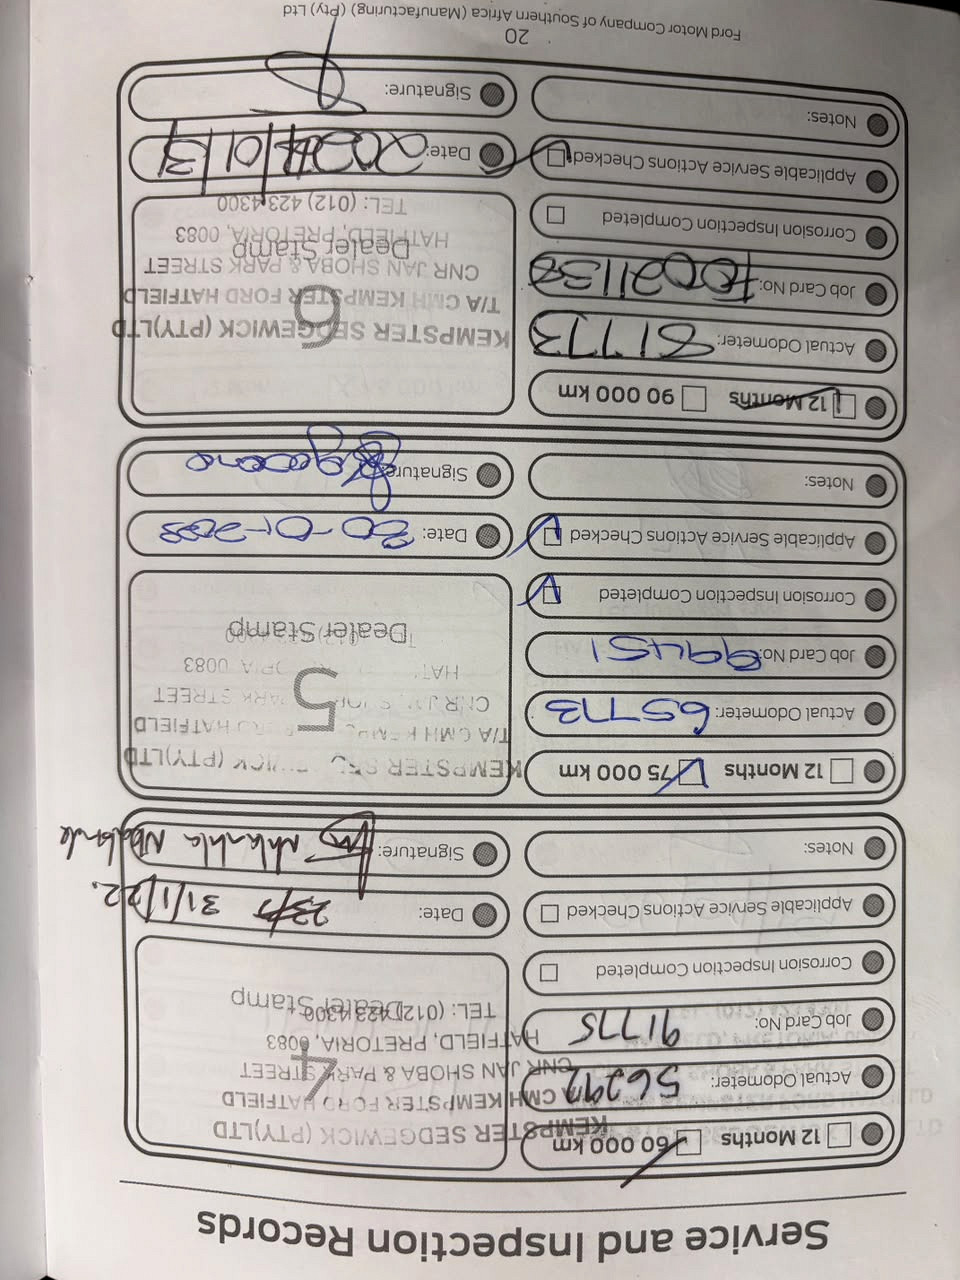 Service and Inspection Records
12 Months 60 000 km
Actual Odometer: 56292
Job Card No: 91775
Corrosion Inspection Completed
Applicable Service Actions Checked
Notes:
4
KEMPSTER SEDGEWICK (PTY)LTD
CMH KEMPSTER FORD HATFIELD
CNR JAN SHOBA & PARK STREET
HATFIELD, PRETORIA, 0083
TEL: (012) 423 4300
Dealer Stamp
Date: 31/1/22.
Signature: Nhlanhla
12 Months 75 000 km
Actual Odometer: 65773
Job Card No: 99451
Corrosion Inspection Completed
Applicable Service Actions Checked
Notes:
5
KEMPSTER (PTY)LTD
T/A CMH HATFIELD
CNR PARK STREET
0083
Dealer Stamp
Date: 30-01-2023
Signature:
12 Months 90 000 km
Actual Odometer: 81773
Job Card No:
Corrosion Inspection Completed
Applicable Service Actions Checked
Notes:
6
KEMPSTER SEDGEWICK (PTY)LTD
T/A CMH KEMPSTER FORD HATFIELD
CNR JAN SHOBA & PARK STREET
HATFIELD, PRETORIA, 0083
TEL: (012) 423 4300
Dealer Stamp
Date:
Signature:
20
Ford Motor Company of Southern Africa (Manufacturing) (Pty) Ltd